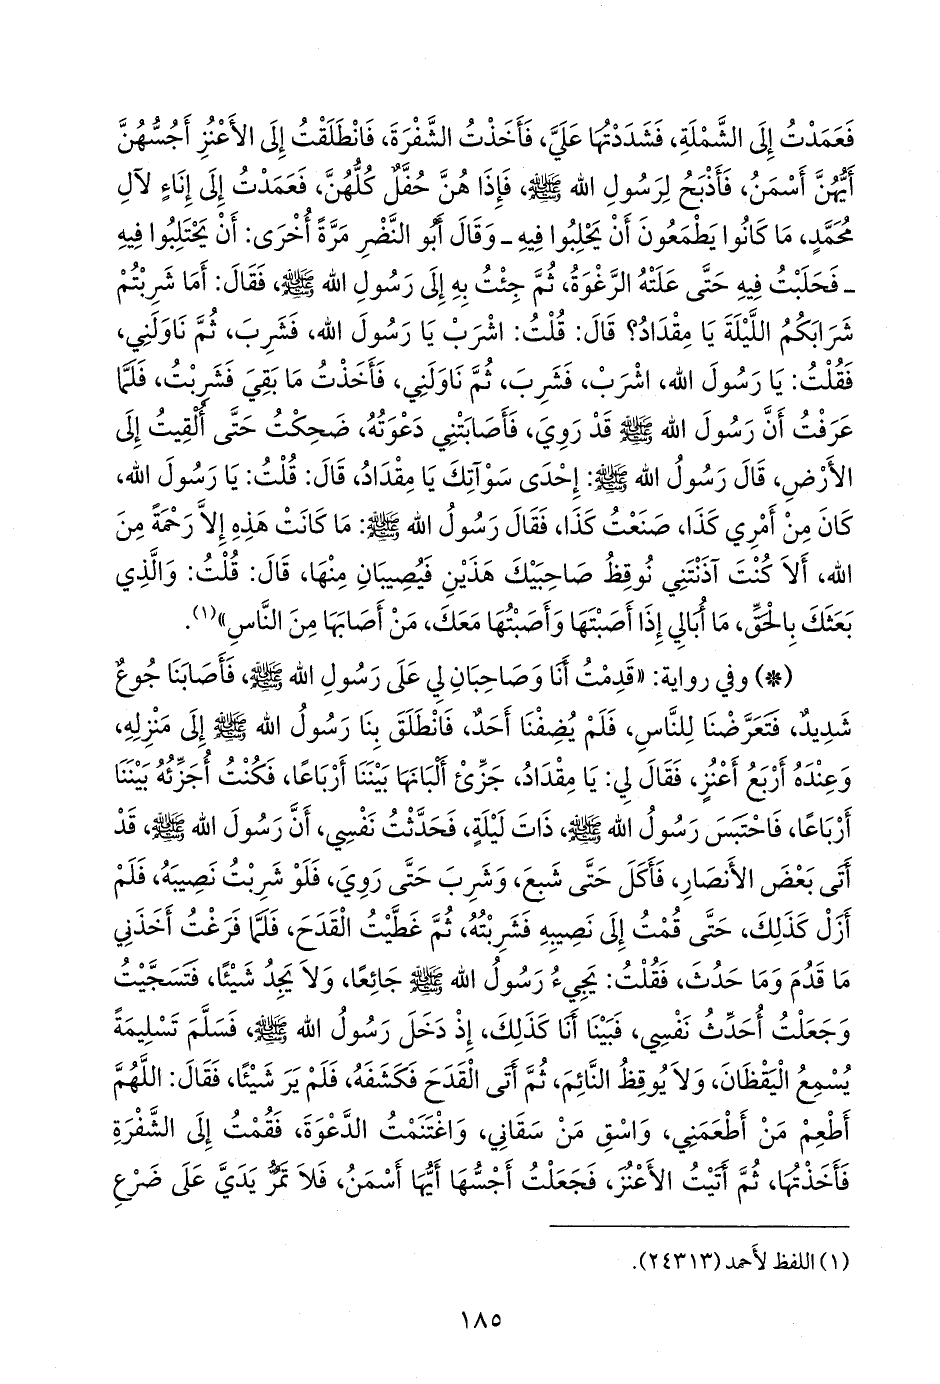 فَعَمَدْتُ إِلَى الشَّمْلَةِ، فَشَدَدْتُهَا عَلَيَّ، فَأَخَذْتُ الشَّفْرَةَ، فَانْطَلَقْتُ إِلَى الأَعْنُزِ أَجُسُّهُنَّ
أَيُّهُنَّ أَسْمَنُ، فَأَذْبَحُ لِرَسُولِ الله ﷺ، فَإِذَا هُنَّ حُفَّلٌ كُلُّهُنَّ، فَعَمَدْتُ إِلَى إِنَاءٍ لآلِ
مُحَمَّدٍ، مَا كَانُوا يَطْمَعُونَ أَنْ يَحْلِبُوا فِيهِ ـ وَقَالَ أَبُو النَّضْرِ مَرَّةً أُخْرَى: أَنْ يَحْتَلِبُوا فِيهِ
ـ فَحَلَبْتُ فِيهِ حَتَّى عَلَتْهُ الرَّغْوَةُ، ثُمَّ جِئْتُ بِهِ إِلَى رَسُولِ الله ﷺ، فَقَالَ: أَمَا شَرِبْتُمْ
شَرَابَكُمُ اللَّيْلَةَ يَا مِقْدَادُ؟ قَالَ: قُلْتُ: اشْرَبْ يَا رَسُولَ الله، فَشَرِبَ، ثُمَّ نَاوَلَنِي،
فَقُلْتُ: يَا رَسُولَ الله، اشْرَبْ، فَشَرِبَ، ثُمَّ نَاوَلَنِي، فَأَخَذْتُ مَا بَقِيَ فَشَرِبْتُ، فَلَمَّا
عَرَفْتُ أَنَّ رَسُولَ الله ﷺ قَدْ رَوِيَ، فَأَصَابَتْنِي دَعْوَتُهُ، ضَحِكْتُ حَتَّى أُلْقِيتُ إِلَى
الأَرْضِ، قَالَ رَسُولُ الله ﷺ: إِحْدَى سَوْآتِكَ يَا مِقْدَادُ، قَالَ: قُلْتُ: يَا رَسُولَ الله،
كَانَ مِنْ أَمْرِي كَذَا، صَنَعْتُ كَذَا، فَقَالَ رَسُولُ الله ﷺ: مَا كَانَتْ هَذِهِ إِلاَّ رَحْمَةً مِنَ
الله، أَلاَ كُنْتَ آذَنْتَنِي نُوقِظُ صَاحِبَيْكَ هَذَيْنِ فَيُصِيبَانِ مِنْهَا، قَالَ: قُلْتُ: وَالَّذِي
بَعَثَكَ بِالْحَقِّ، مَا أُبَالِي إِذَا أَصَبْتَهَا وَأَصَبْتُهَا مَعَكَ، مَنْ أَصَابَهَا مِنَ النَّاسِ»(١).
(*) وفي رواية: «قَدِمْتُ أَنَا وَصَاحِبَانِ لِي عَلَى رَسُولِ الله ﷺ، فَأَصَابَنَا جُوعٌ
شَدِيدٌ، فَتَعَرَّضْنَا لِلنَّاسِ، فَلَمْ يُضِفْنَا أَحَدٌ، فَانْطَلَقَ بِنَا رَسُولُ الله ﷺ إِلَى مَنْزِلِهِ،
وَعِنْدَهُ أَرْبَعُ أَعْنُزٍ، فَقَالَ لِي: يَا مِقْدَادُ، جَزِّئْ أَلْبَانَهَا بَيْنَنَا أَرْبَاعًا، فَكُنْتُ أُجَزِّئُهُ بَيْنَنَا
أَرْبَاعًا، فَاحْتَبَسَ رَسُولُ الله ﷺ، ذَاتَ لَيْلَةٍ، فَحَدَّثْتُ نَفْسِي، أَنَّ رَسُولَ الله ﷺ، قَدْ
أَتَى بَعْضَ الأَنْصَارِ، فَأَكَلَ حَتَّى شَبِعَ، وَشَرِبَ حَتَّى رَوِيَ، فَلَوْ شَرِبْتُ نَصِيبَهُ، فَلَمْ
أَزَلْ كَذَلِكَ، حَتَّى قُمْتُ إِلَى نَصِيبِهِ فَشَرِبْتُهُ، ثُمَّ غَطَّيْتُ الْقَدَحَ، فَلَمَّا فَرَغْتُ أَخَذَنِي
مَا قَدُمَ وَمَا حَدُثَ، فَقُلْتُ: يَجِيءُ رَسُولُ الله ﷺ جَائِعًا، وَلاَ يَجِدُ شَيْئًا، فَتَسَجَّيْتُ
وَجَعَلْتُ أُحَدِّثُ نَفْسِي، فَبَيْنَا أَنَا كَذَلِكَ، إِذْ دَخَلَ رَسُولُ الله ﷺ، فَسَلَّمَ تَسْلِيمَةً
يُسْمِعُ الْيَقْظَانَ، وَلاَ يُوقِظُ النَّائِمَ، ثُمَّ أَتَى الْقَدَحَ فَكَشَفَهُ، فَلَمْ يَرَ شَيْئًا، فَقَالَ: اللَّهُمَّ
أَطْعِمْ مَنْ أَطْعَمَنِي، وَاسْقِ مَنْ سَقَانِي، وَاغْتَنَمْتُ الدَّعْوَةَ، فَقُمْتُ إِلَى الشَّفْرَةِ
فَأَخَذْتُهَا، ثُمَّ أَتَيْتُ الأَعْنُزَ، فَجَعَلْتُ أَجُسُّهَا أَيُّهَا أَسْمَنُ، فَلاَ تَمُرُّ يَدَيَّ عَلَى ضَرْعِ
(١) اللفظ لأحمد (٢٤٣١٣).
١٨٥